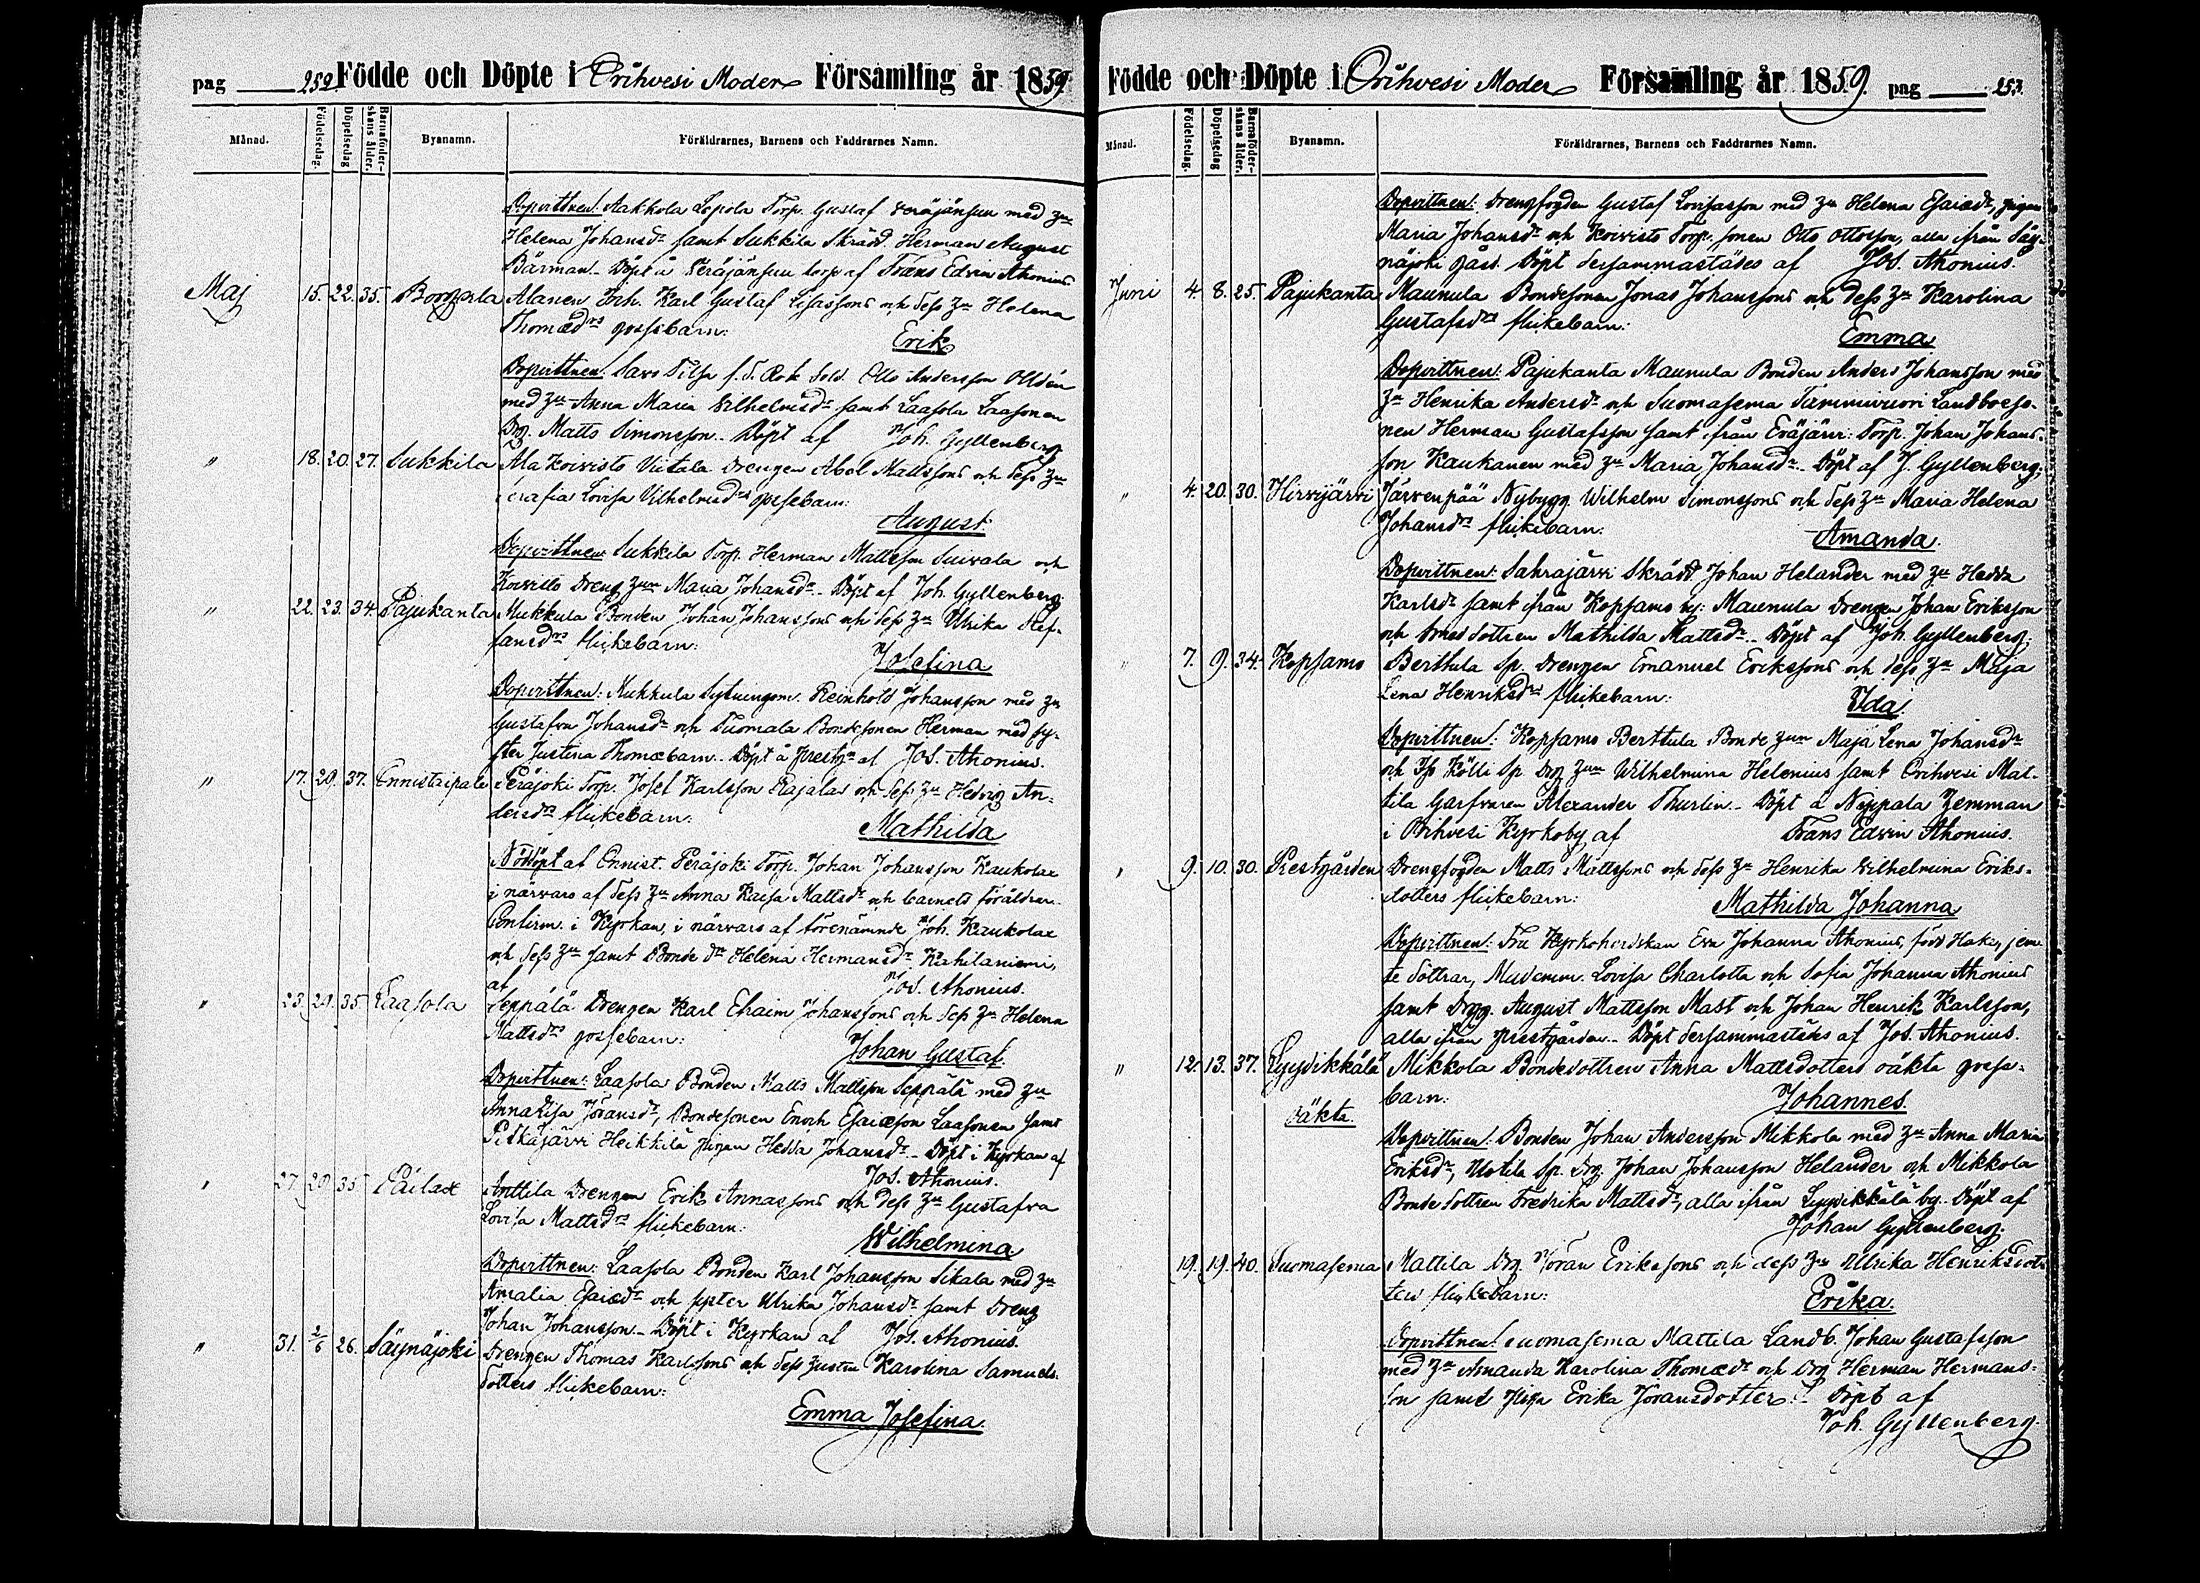 pag 252 Födde och Döpte i Orihvesi Moder Församling år 1859
Månad. Födelsedag. Döpelsedag Barnaföderskans ålder. Byanamn. Föräldrarnes, Barnens och Faddrarnes Namn.
Dopvittnen: Aakkola Lepola Torp. Gustaf Peräjänsuu med hu
Helena Johansdr samt Sukkila Skrädd. Herman August
Bärman. Döpt å Peräjänsuu torp af Frans Edvin Ahonius
Maj 15. 22. 35. Alanen Inh. Karl Gustaf Lisassons och dess hu Helena
Thomædrs gossebarn:
Erik
Dopvittnen: Otto Andersson Oldén
med hu Anna Maria Vilhelmsdr samt Laasola Laasonen
Drg. Matts Simonsson. Döpt af Joh. Gyllenberg
" 18. 20. 27. Sukkila Ala Koivisto Viitala Drengen Abel Mattssons och dess hu
Serafia Lovisa Vilhelmsdrs gossebarn:
August.
Dopvittnen: Sukkila Torp. Herman Mattsson Suivala och
Koivisto Dreng hun Maria Johansdr. Döpt af Joh. Gyllenberg.
" 22. 23. 34. Pajukanta Mukkula Bonden Johan Johanssons och dess hu Ulrika Stef-
fansdrs flickebarn:
Josefina
Dopvittnen: Mukkula Sytningsm. Reinhold Johansson med hu
Gustafva Johansdr och Tuomala Bondesonen Herman med sy-
ster Justina Thomæbarn. Döpt å prestg. af Jos. Ahonius.
" 17. 29. 37. Ennistaipale Peräjoki Torp. Josef Karlsson Rajalas och dess hu Hedvig An-
dersdrs flickebarn:
Mathilda
Nöddöpt af Ennist. Peräjoki Torp. Johan Johansson Kaukolax
i närvaro af dess hu Anna Kaisa Mattsdr och barnets föräldrar.
Confirm. i Kyrkan, i närvaro af förenämnde Joh. Kaukolax
och dess hu samt Bonde dr Helena Hermansdr Kahilaniemi,
af Jos. Ahonius.
" 23. 29. 35. Laasola Seppälä Drengen Karl Efraim Johanssons och dess hu Helena
Mattsdrs gossebarn:
Johan Gustaf.
Dopvittnen: Laasola Bonden Matts Mattsson Seppälä med hu
Anna Lisa Jöransdr, Bondesonen Enoch Esaiæson Laasonen samt
Pitkäjärvi Heikkilä pigan Hedda Johansdr. Döpt i Kyrkan af
Jos. Ahonius.
" 27. 29. 35. Påilax Anttila Drengen Erik Annassons och dess hu Gustafva
Lovisa Mattsdrs flickebarn:
Wilhelmina
Dopvittnen: Laasola Bonden Karl Johansson Sikala med hu
Amalia Esaiædr och syster Ulrika Johansdr samt Dreng
Johan Johansson. Döpt i Kyrkan af Jos. Ahonius.
" 31. 2/6 26. Säynäjoki Drengen Thomas Karlssons och dess hustru Karolina Samuels-
dotters flickebarn:
Emma Josefina.
Födde och Döpte i Orihvesi Moder Församling år 1859. pag 253.
Månad. Födelsedag. Döpelsedag Barnaföderskans ålder. Byanamn. Föräldrarnes, Barnens och Faddrarnes Namn.
Dopvittnen: Drengfogden Gustaf Lovisasson med hu Helena Esaiædr, pigan
Maria Johansdr och Koivisto Torp. sonen Otto Ottosson, alla ifrån Säy-
näjoki gård. Döpt dersammastädes af Jos. Ahonius.
Juni 4. 8. 25. Pajukanta Maunula Bondesonen Jonas Johanssons och dess hu Karolina
Gustafsdrs flickebarn:
Emma
Dopvittnen: Pajukanta Maunula Bonden Anders Johansson med
hu Henrika Andersdr och Suomasema Tammivuori Landboeso-
nen Herman Gustafsson samt ifrån Eräjärvi: Torp. Johan Johans-
son Kaukanen med hu Maria Johansdr. Döpt af J. Gyllenberg.
" 4. 20. 30. Hirvijärvi Järvenpää Nybygg. Wilhelm Simonssons och dess hu Maria Helena
Johansdrs flickebarn:
Amanda.
Dopvittnen: Sahrajärvi Skrädd. Johan Helander med hu Hedda
Karlsdr samt ifrån Kopsamo by: Maunula Drengen Johan Eriksson
och dottren Mathilda Mattsdr. Döpt af Joh. Gyllenberg.
" 7. 9. 34. Kopsamo Berttula Sp. Drengen Emanuel Erikssons och dess hu Maja
Lena Henriksdrs flickebarn:
Ida.
Dopvittnen: Kopsamo Berttula Bonde hun Maja Lena Johansdr
och Kölli Sp. Drg hun Wilhelmina Helenius samt Orihvesi Mat-
tila Garfvaren Alexander Thurlin. Döpt å Neppala hemman
i Orihvesi Kyrkoby af Frans Edvin Ahonius.
" 9. 10. 30. Prestgården Drengfogden Matts Mattssons och dess hu Henrika Wilhelmina Eriks-
dotters flickebarn:
Mathilda Johanna
Dopvittnen: Fru Kyrkoherdskan Eva Johanna Ahonius, född Hake, jem-
te döttrar, Mademm. Lovisa Charlotta och Sofia Johanna Ahonius
samt Drgg. August Mattsson Mast och Johan Henrik Karlsson,
alla ifrån prestgården. Döpt dersammastädes af Jos. Ahonius.
" 12. 13. 37. Lyydikkälä Mikkola Bondedottren Anna Mattsdotters oäkta gosse-
barn:
oäkta. Johannes.
Dopvittnen: Bonden Johan Andersson Mikkola med hu Anna Maria
Eriksdr, Uotila Sp. Drg. Johan Johansson Helander och Mikkola
Bonde dottren Fredrika Mattsdr, alla ifrån Lyydikkälä by. Döpt af
Johan Gyllenberg.
19. 19. 40. Suomasema Mattila Drg. Jöran Erikssons och dess hu Ulrika Henriksdot-
ters flickebarn:
Erika.
Dopvittnen: Suomasema Mattila Landb. Johan Gustafsson
med hu Amanda Karolina Thomædr och Drg Herman Hermans-
son samt pigan Erika Jöransdotter. Döpt af
Joh. Gyllenberg.